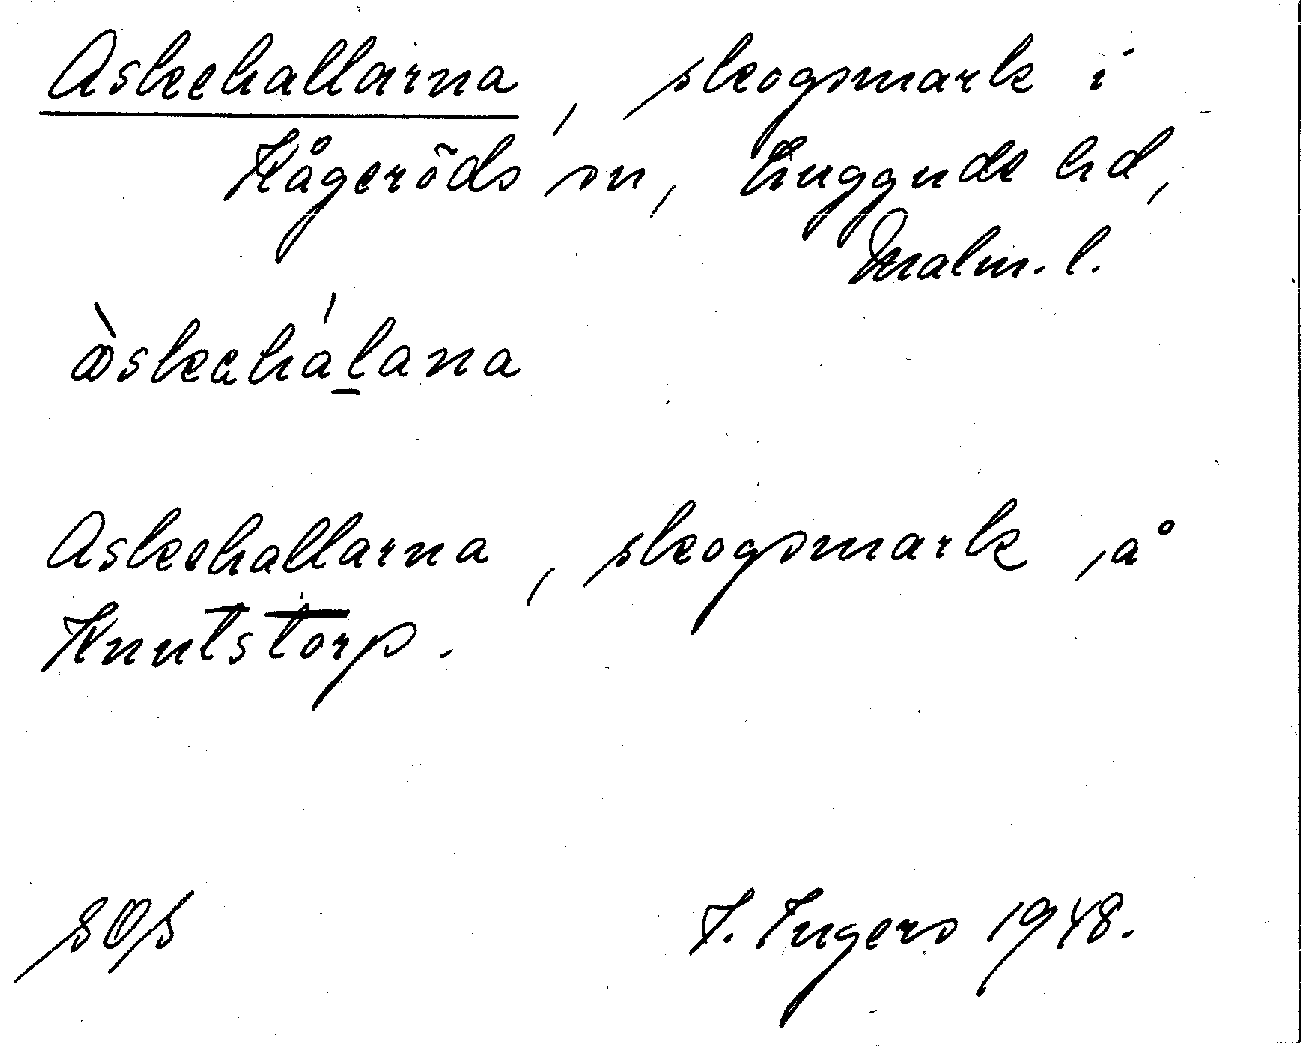 Askehallarna, skogsmark i
Kågeröds sn, Luggude hd,
Malm. l.
àskehálana
Askehallarna, skogsmark på
Knutstorp.
I. Ingers 1948.